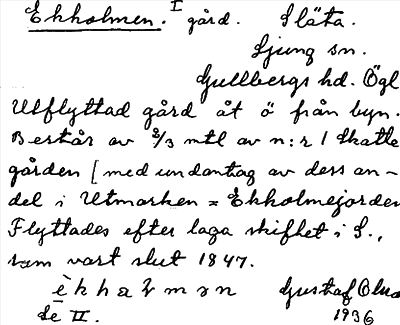 Ekholmen. I gård. Släta.
Ljung sn.
Gullbergs hd. Ögl
Utflyttad gård åt ö från byn.
Består av 2/3 mtl av n:r 1 Skatte
gården [med undantag av dess an-
del i Utmarken = Ekholmejorden
Flyttades efter laga skiftet i S.,
som vart slut 1847.
Gustaf
Se II. 1936